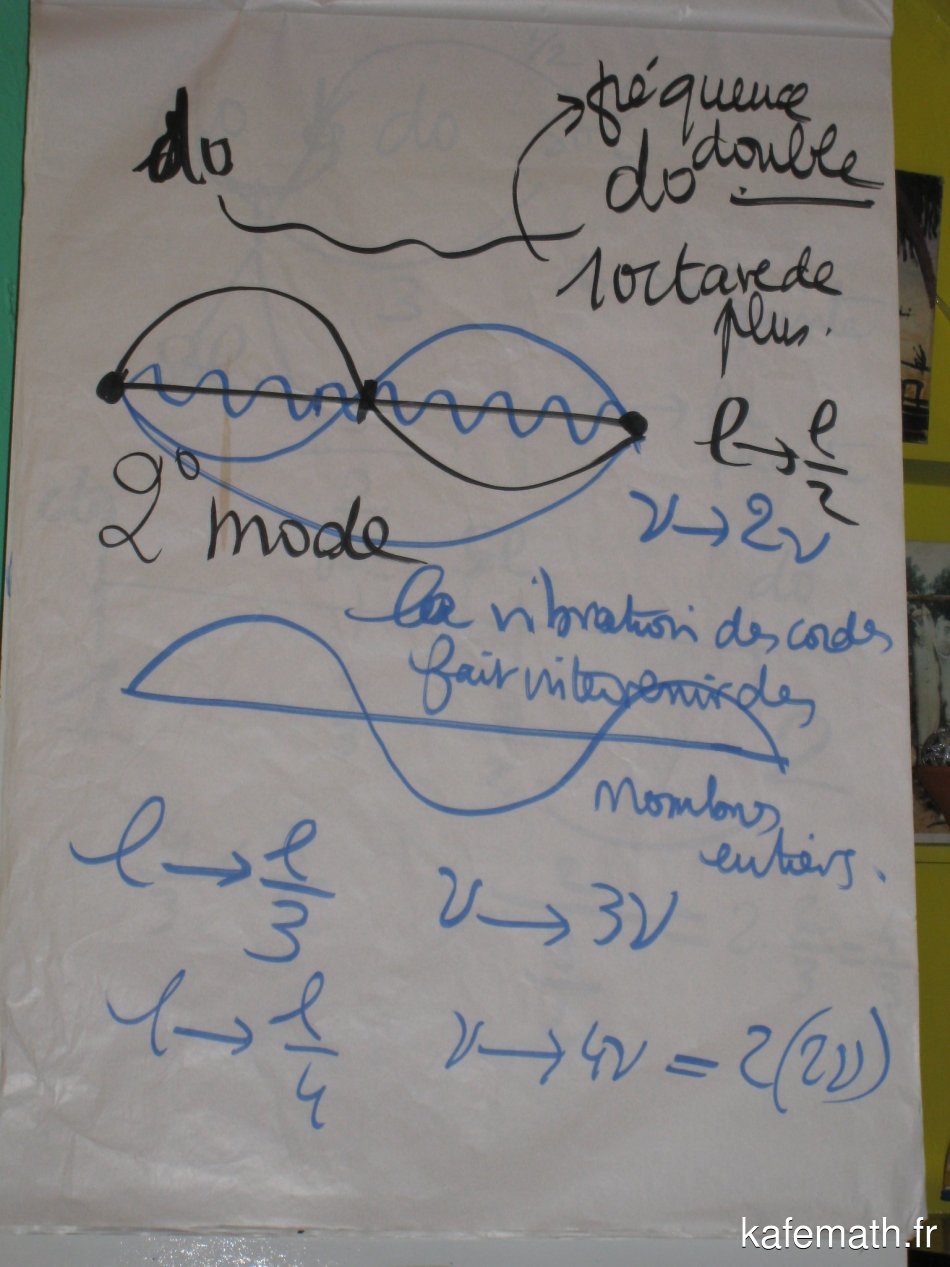 do
fréquence
double
do
1 octave de
plus.
l → l/2
ν → 2ν
2° mode
la vibration des cordes
fait intervenir des
nombres
entiers.
l → l/3 ν → 3ν
l → l/4 ν → 4ν = 2(2ν)
kafemath.fr